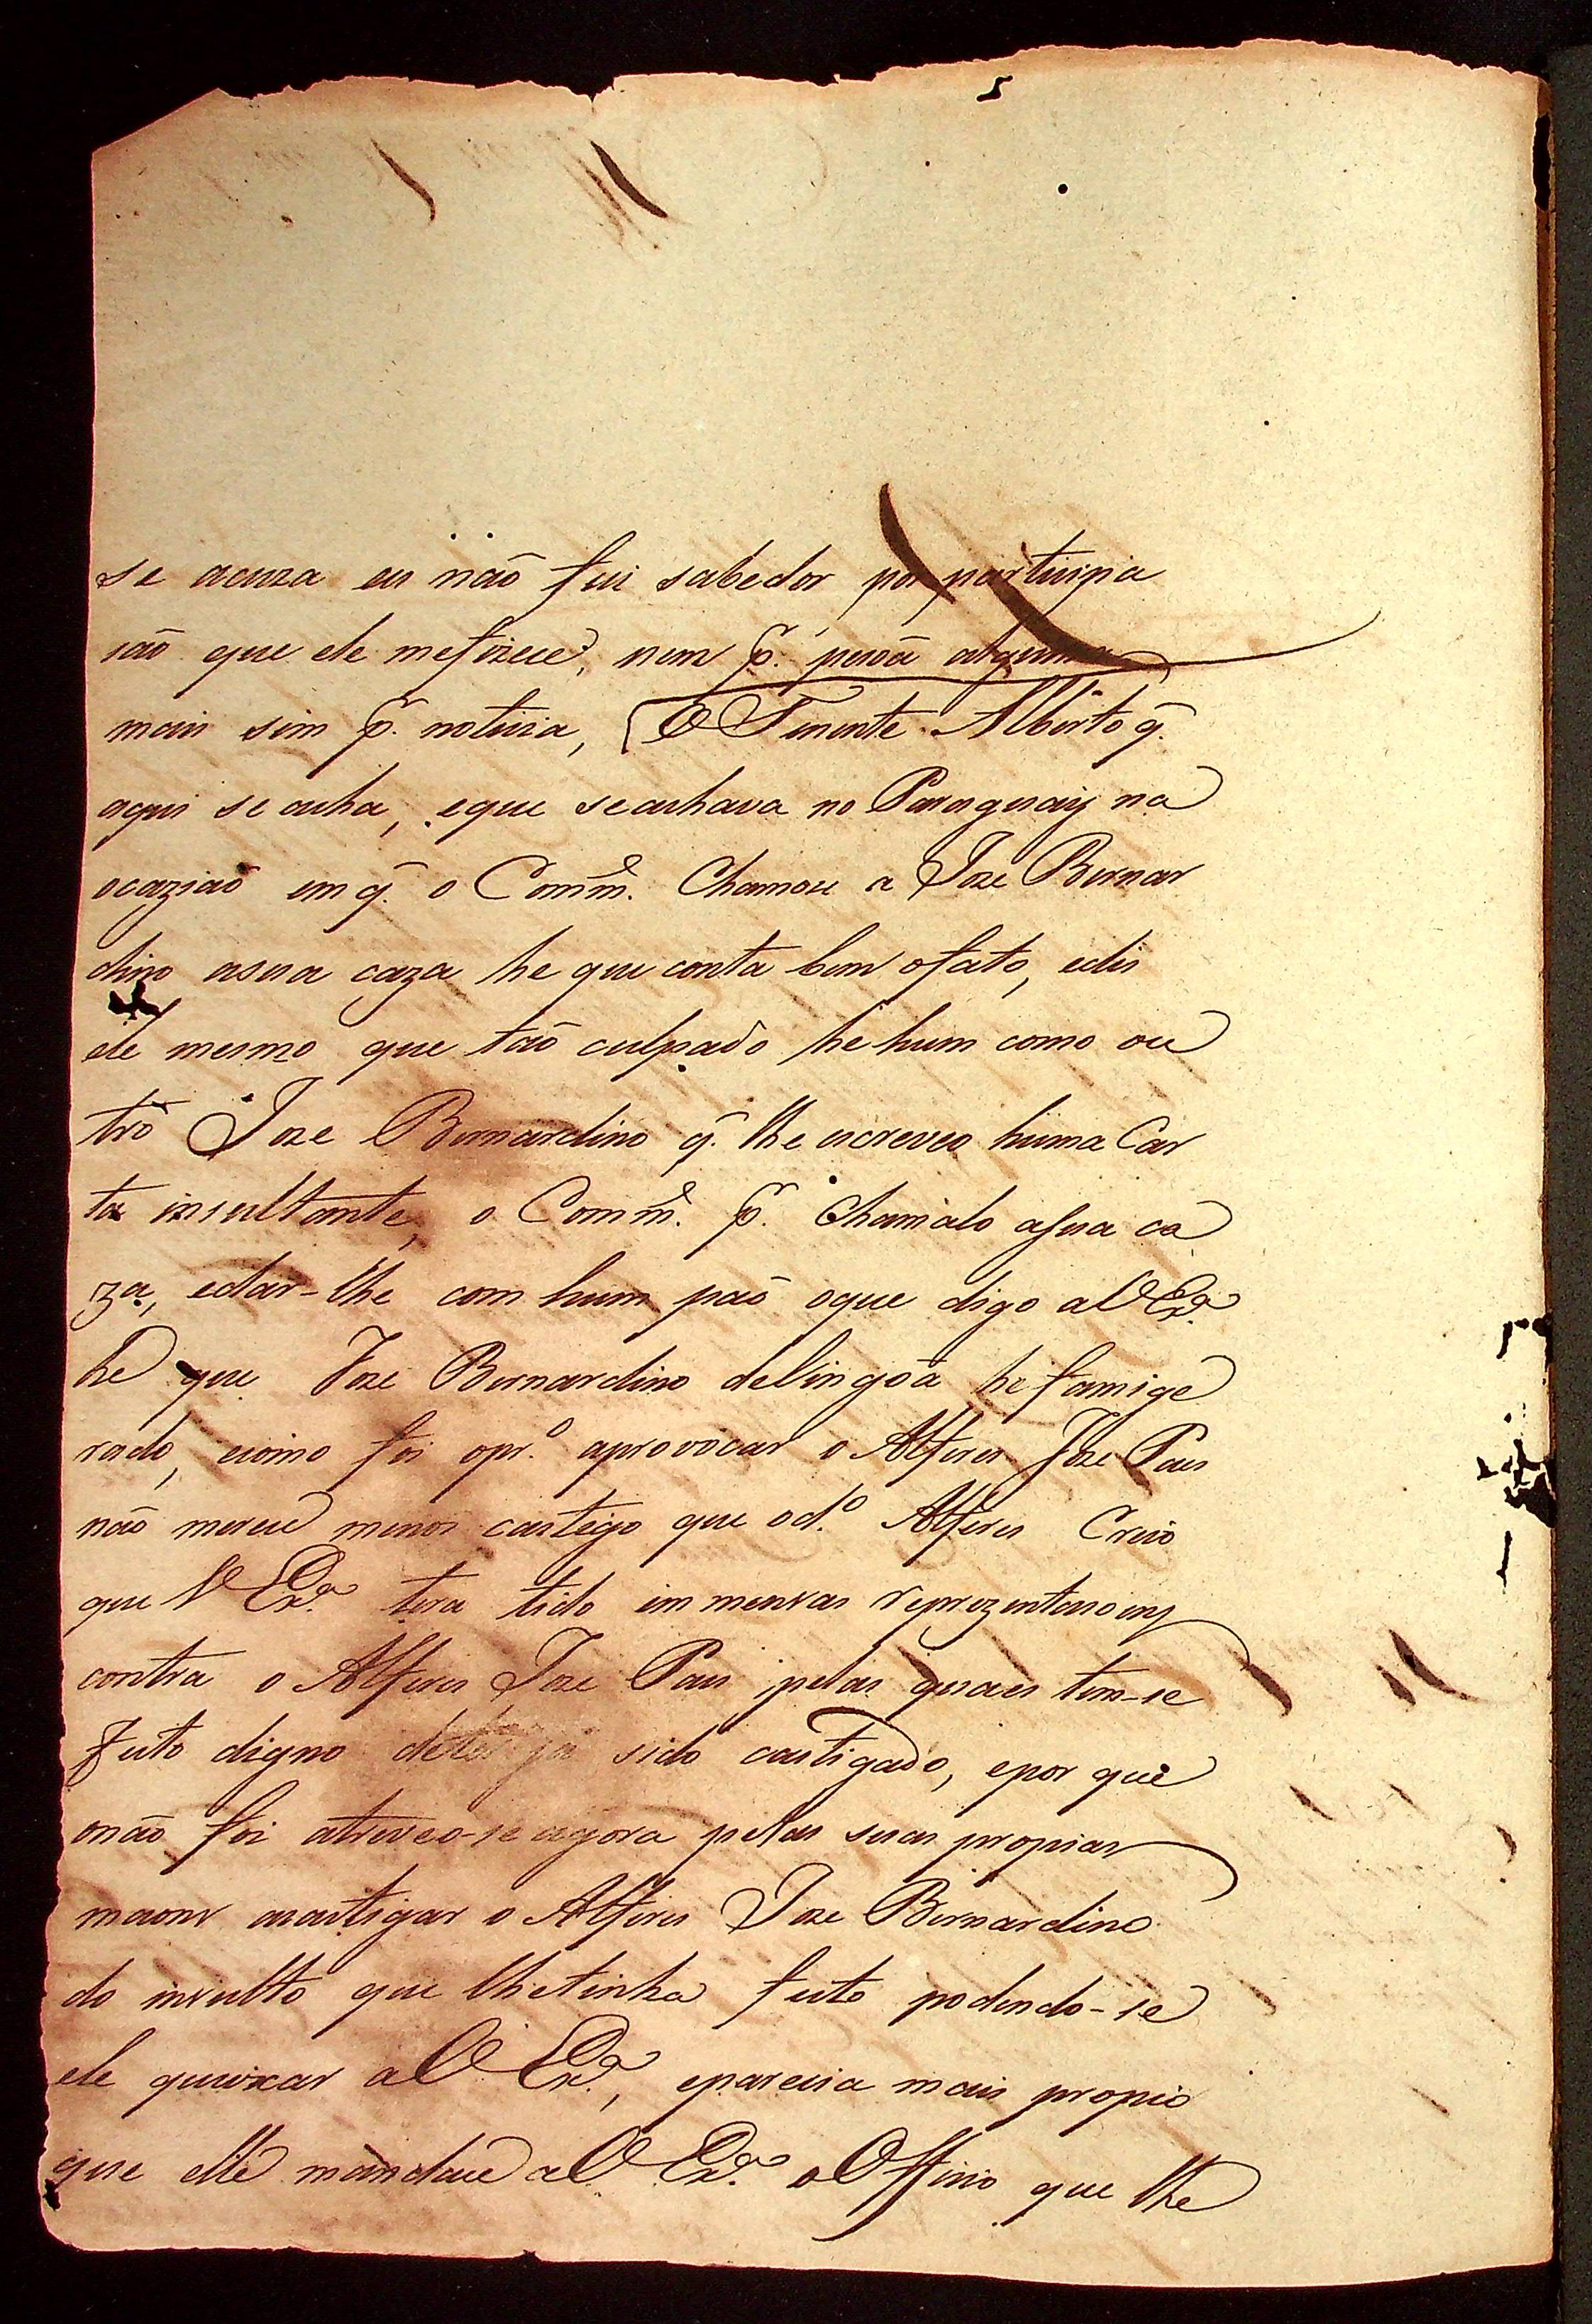 se acuza eu não fui sabedor por participa
são que ele mefizece, nem p.r pesoã alguma
mais sim p.r noticia, O Tenente Alberto q̃.
aqui se acha, eque seachava no Paraguay na
ocaziaõ em q̃. o Comm.e Chamou a Joze Bernar
dino asua caza he que conta bem ofato, edis
ele mesmo que tão culpado he hum como ou
tro Joze Bernardino q̃. lhe escreveo huma Car
ta insultante, o Comm.e p.r Chamalo asua ca
za, edar-lhe com hum paõ oque digo aV Ex.a
he que Joze Bernardino delingoã he famige
rado, ecomo foi opr.o aprovocar o Alferes Joze Paes
não merece menos castigo que od.o Alferes Creio
que V Ex.a tera tido immensas reprezentasoens
contra o Alferes Joze Paes pelas quaes tem-se
feito digno deter ja sido castigado, epor que
onão foi atreveo-se agora pelas suas propias
maons acastigar o Alferes Joze Bernardino
do insulto que lhetinha feito podendo-se
ele queixar aV Ex.a, eparecia mais propio
que elle mandace aV Ex.a oOfficio que lhe